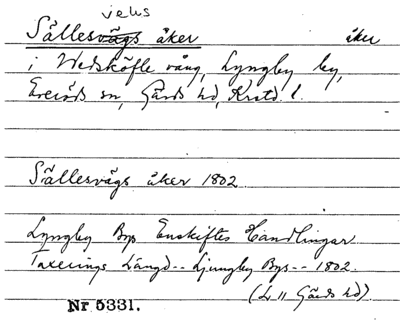 jens
Sällesvägs åker åker
i Wedsköfle vång, Lyngby by,
Everöds sn, Gärds hd, Krstd l.
Sällesvägs åker 1802
Lyngby Bys Enskiftes Handlingar
Taxerings Längd -- Ljungby Bys -- 1802.
(L 11 Gärds hd)
Nr 5331.